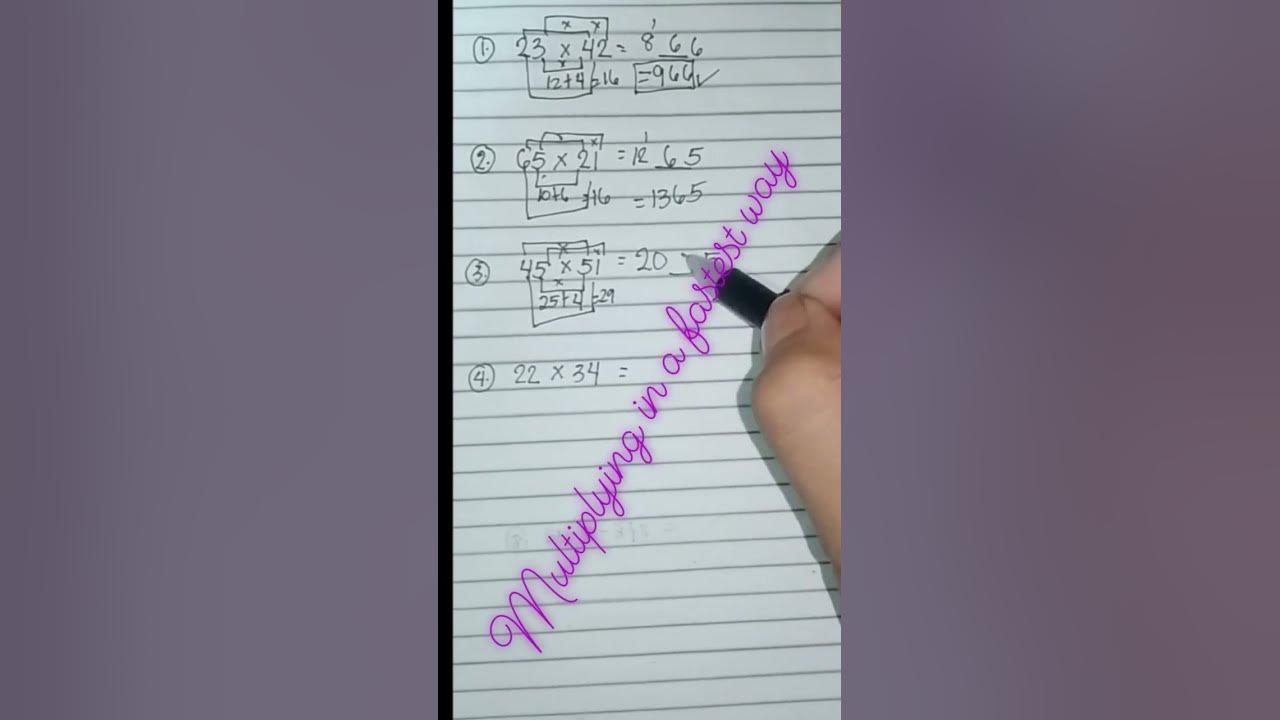 x x
① 23 x 42 = 8 1 6 6
x
12+4 =16 =966 ✓
② 65 x 21 = 12 1 6 5
10+6 =16 =1365
③ 45 x 51 = 20
25+4 =29
④ 22 x 34 =
Multiplying in a fastest way